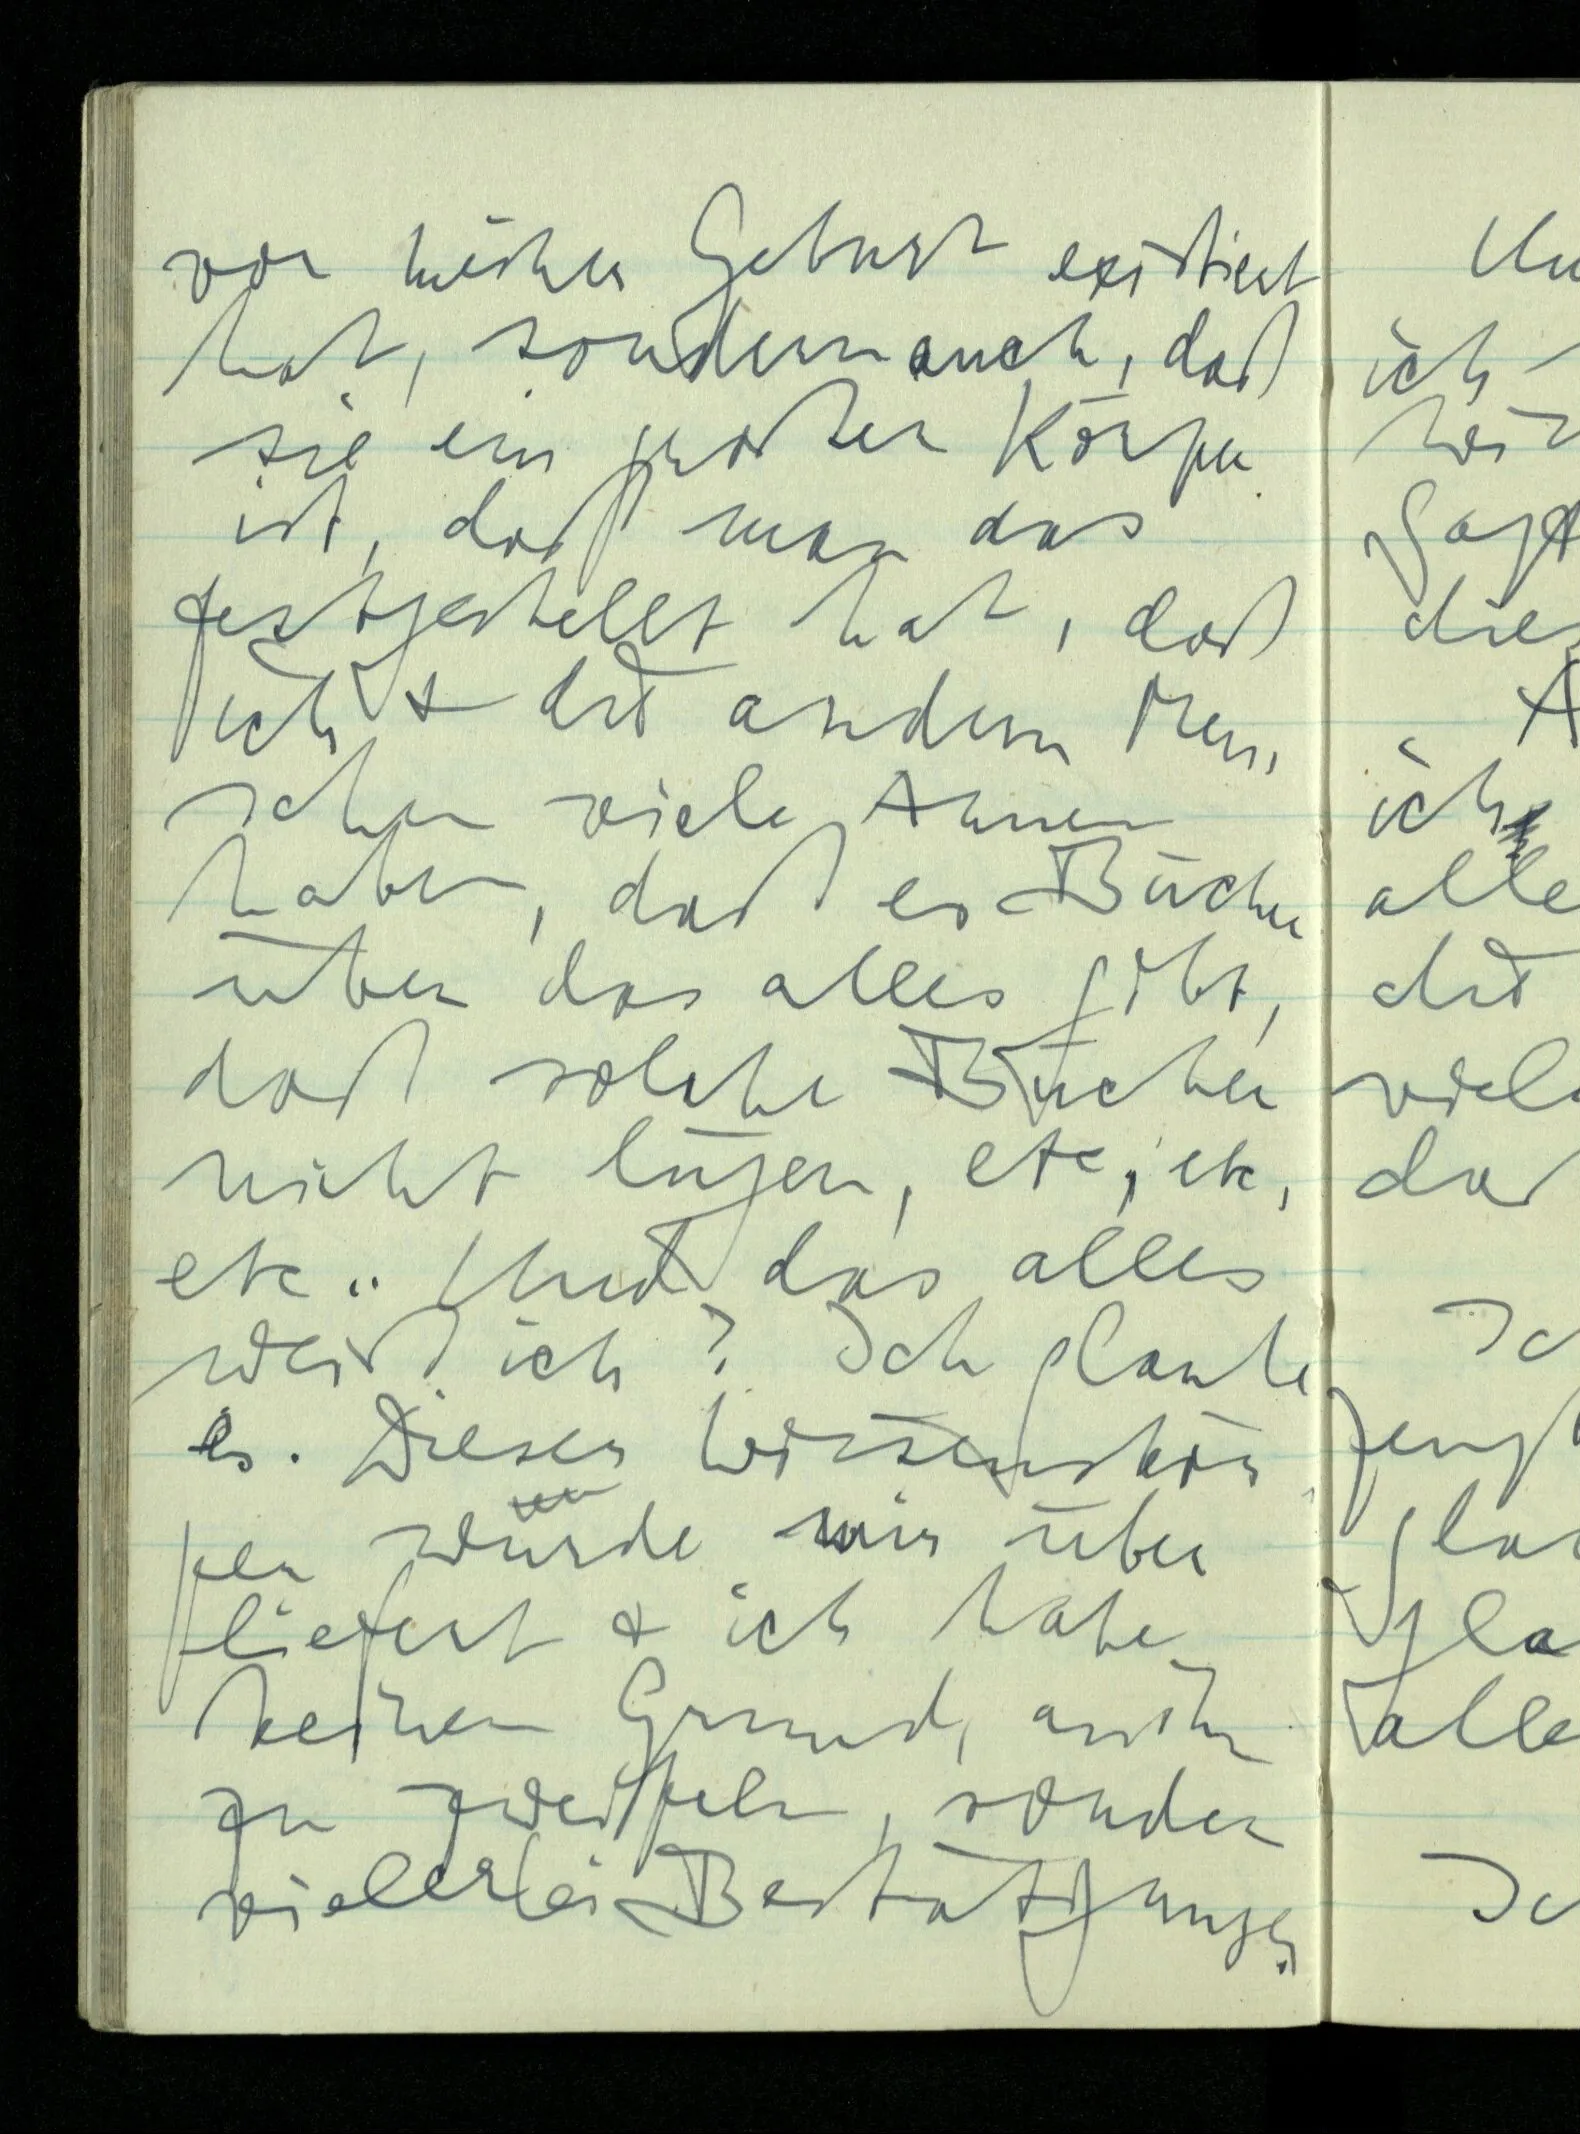 vor meiner Geburt existiert
hat, sondern auch, daß
sie ein großer Körper
ist, daß man das
festgestellt hat, daß
ich & die andern Men-
schen viele Ahnen
haben, daß es Bücher
über das alles gibt,
daß solche Bücher
nicht lügen, etc, etc,
etc.. Und das alles
weiß ich? Ich glaube
es. Dieser Wissenskör-
per wurde mir über
liefert & ich habe
keinen Grund, an ihm
zu zweifeln, sondern
vielerlei Bestätigungen.
ich
alle
die